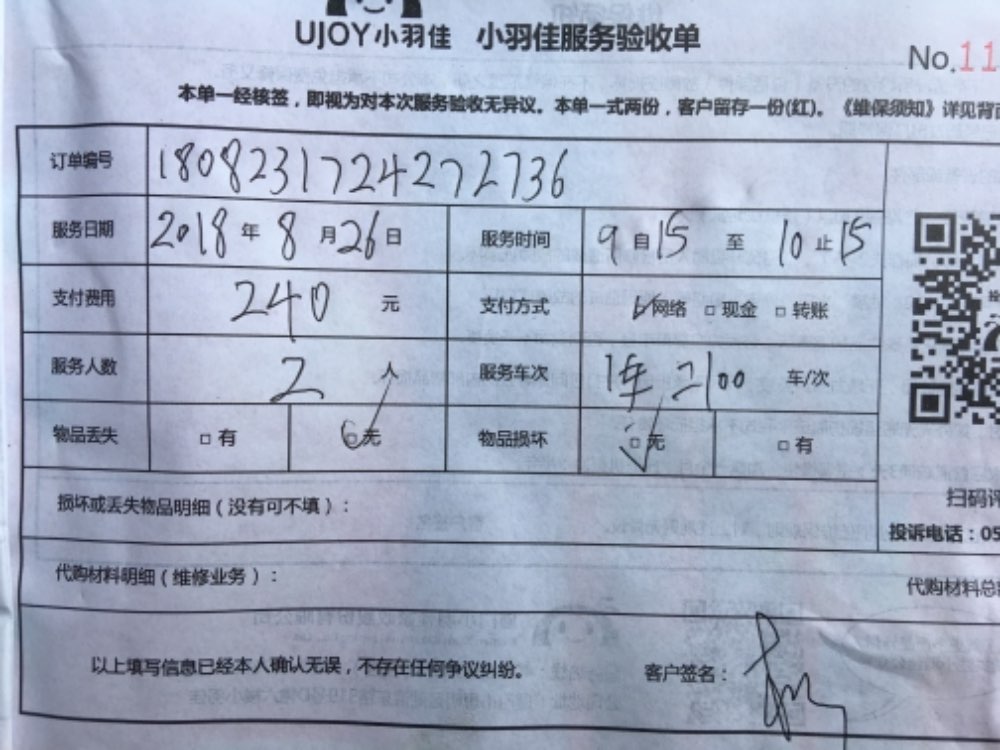 UJOY小羽佳 小羽佳服务验收单
No.11
本单一经核签，即视为对本次服务验收无异议。本单一式两份，客户留存一份(红)。《维保须知》详见背面
订单编号 180823172427 2736
服务日期 2018 年 8 月 26 日 服务时间 9 自 15 至 10 止 15
支付费用 240 元 支付方式 □网络 □现金 □转账
服务人数 2 人 服务车次 车/次
物品丢失 □有 □无 物品损坏 □无 □有
损坏或丢失物品明细（没有可不填）：
扫码评
投诉电话：05
代购材料明细（维修业务）：
代购材料总
以上填写信息已经本人确认无误，不存在任何争议纠纷。 客户签名：